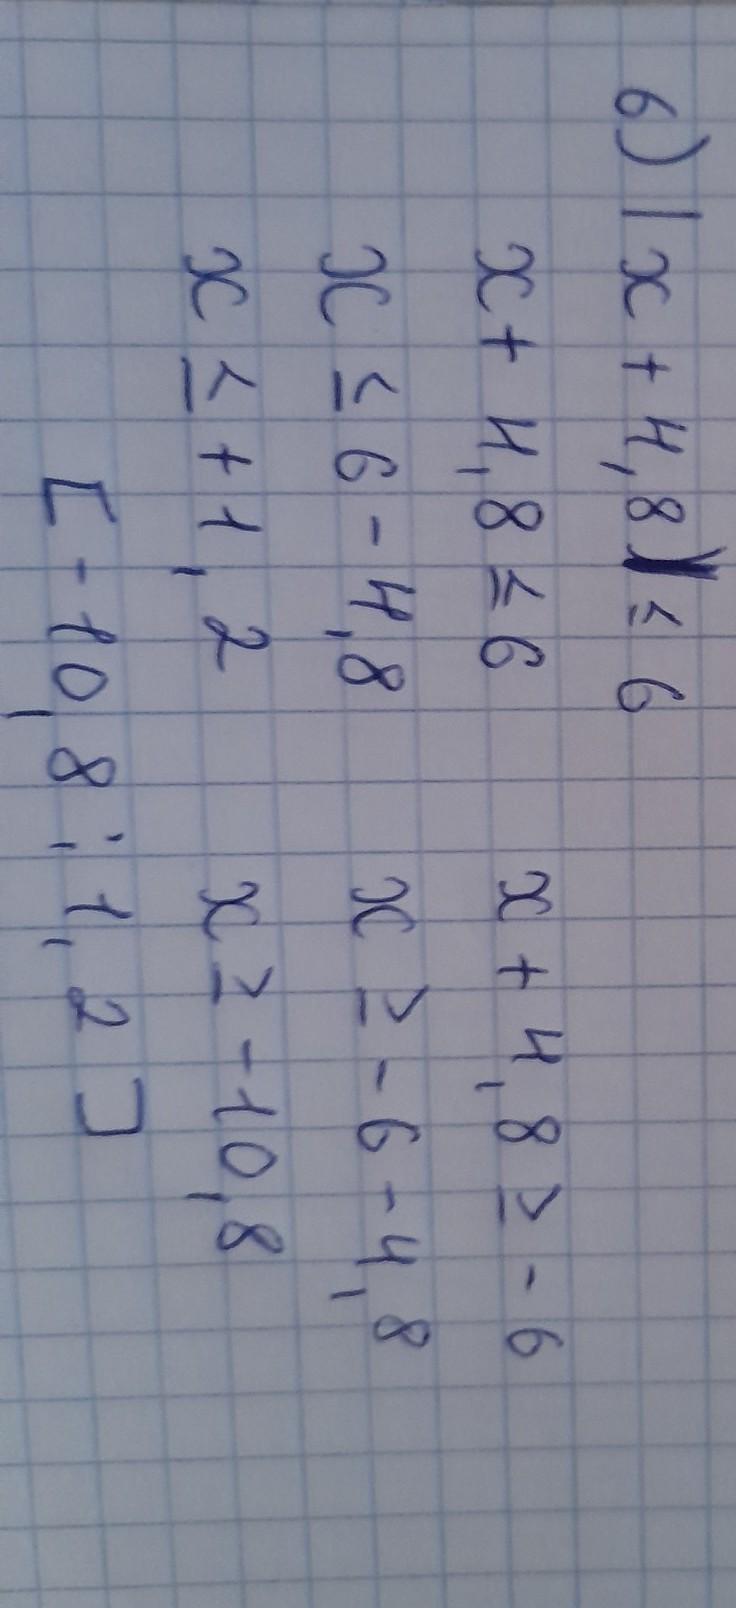 6) |x + 4,8| ≤ 6
x + 4,8 ≤ 6 x + 4,8 ≥ - 6
x ≤ 6 - 4,8 x ≥ - 6 - 4,8
x ≤ + 1,2 x ≥ - 10,8
[ - 10,8 ; 1,2 ]